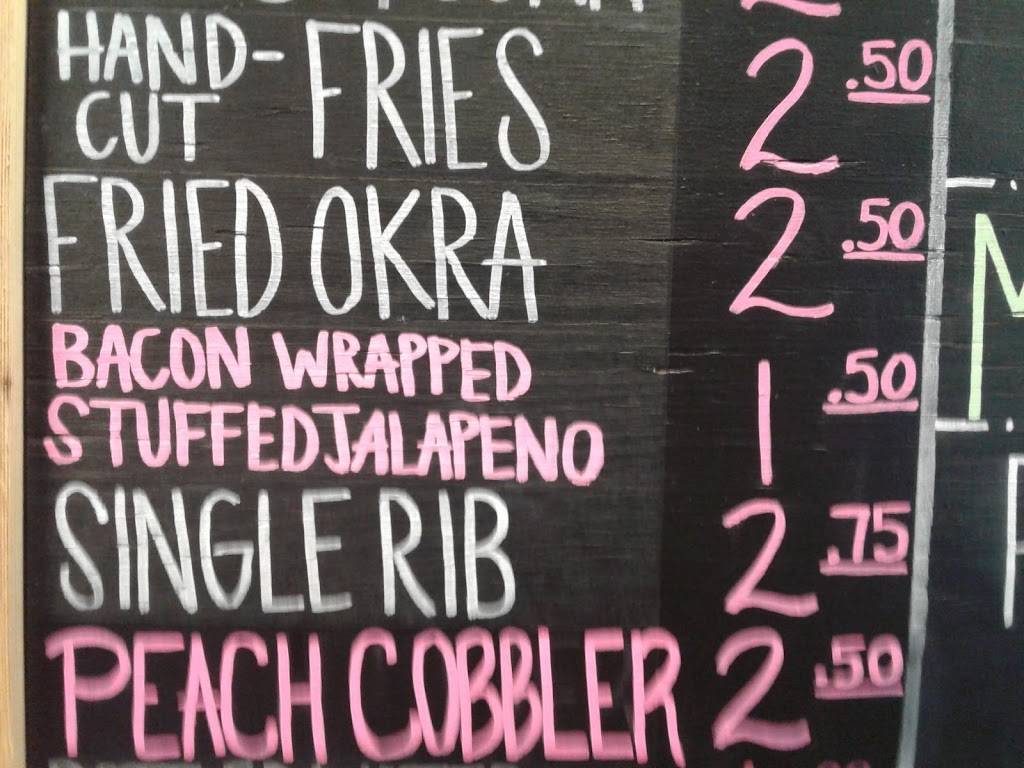 HAND-CUT FRIES 2.50
FRIED OKRA 2.50
BACON WRAPPED
STUFFED JALAPENO 1.50
SINGLE RIB 2.75
PEACH COBBLER 2.50